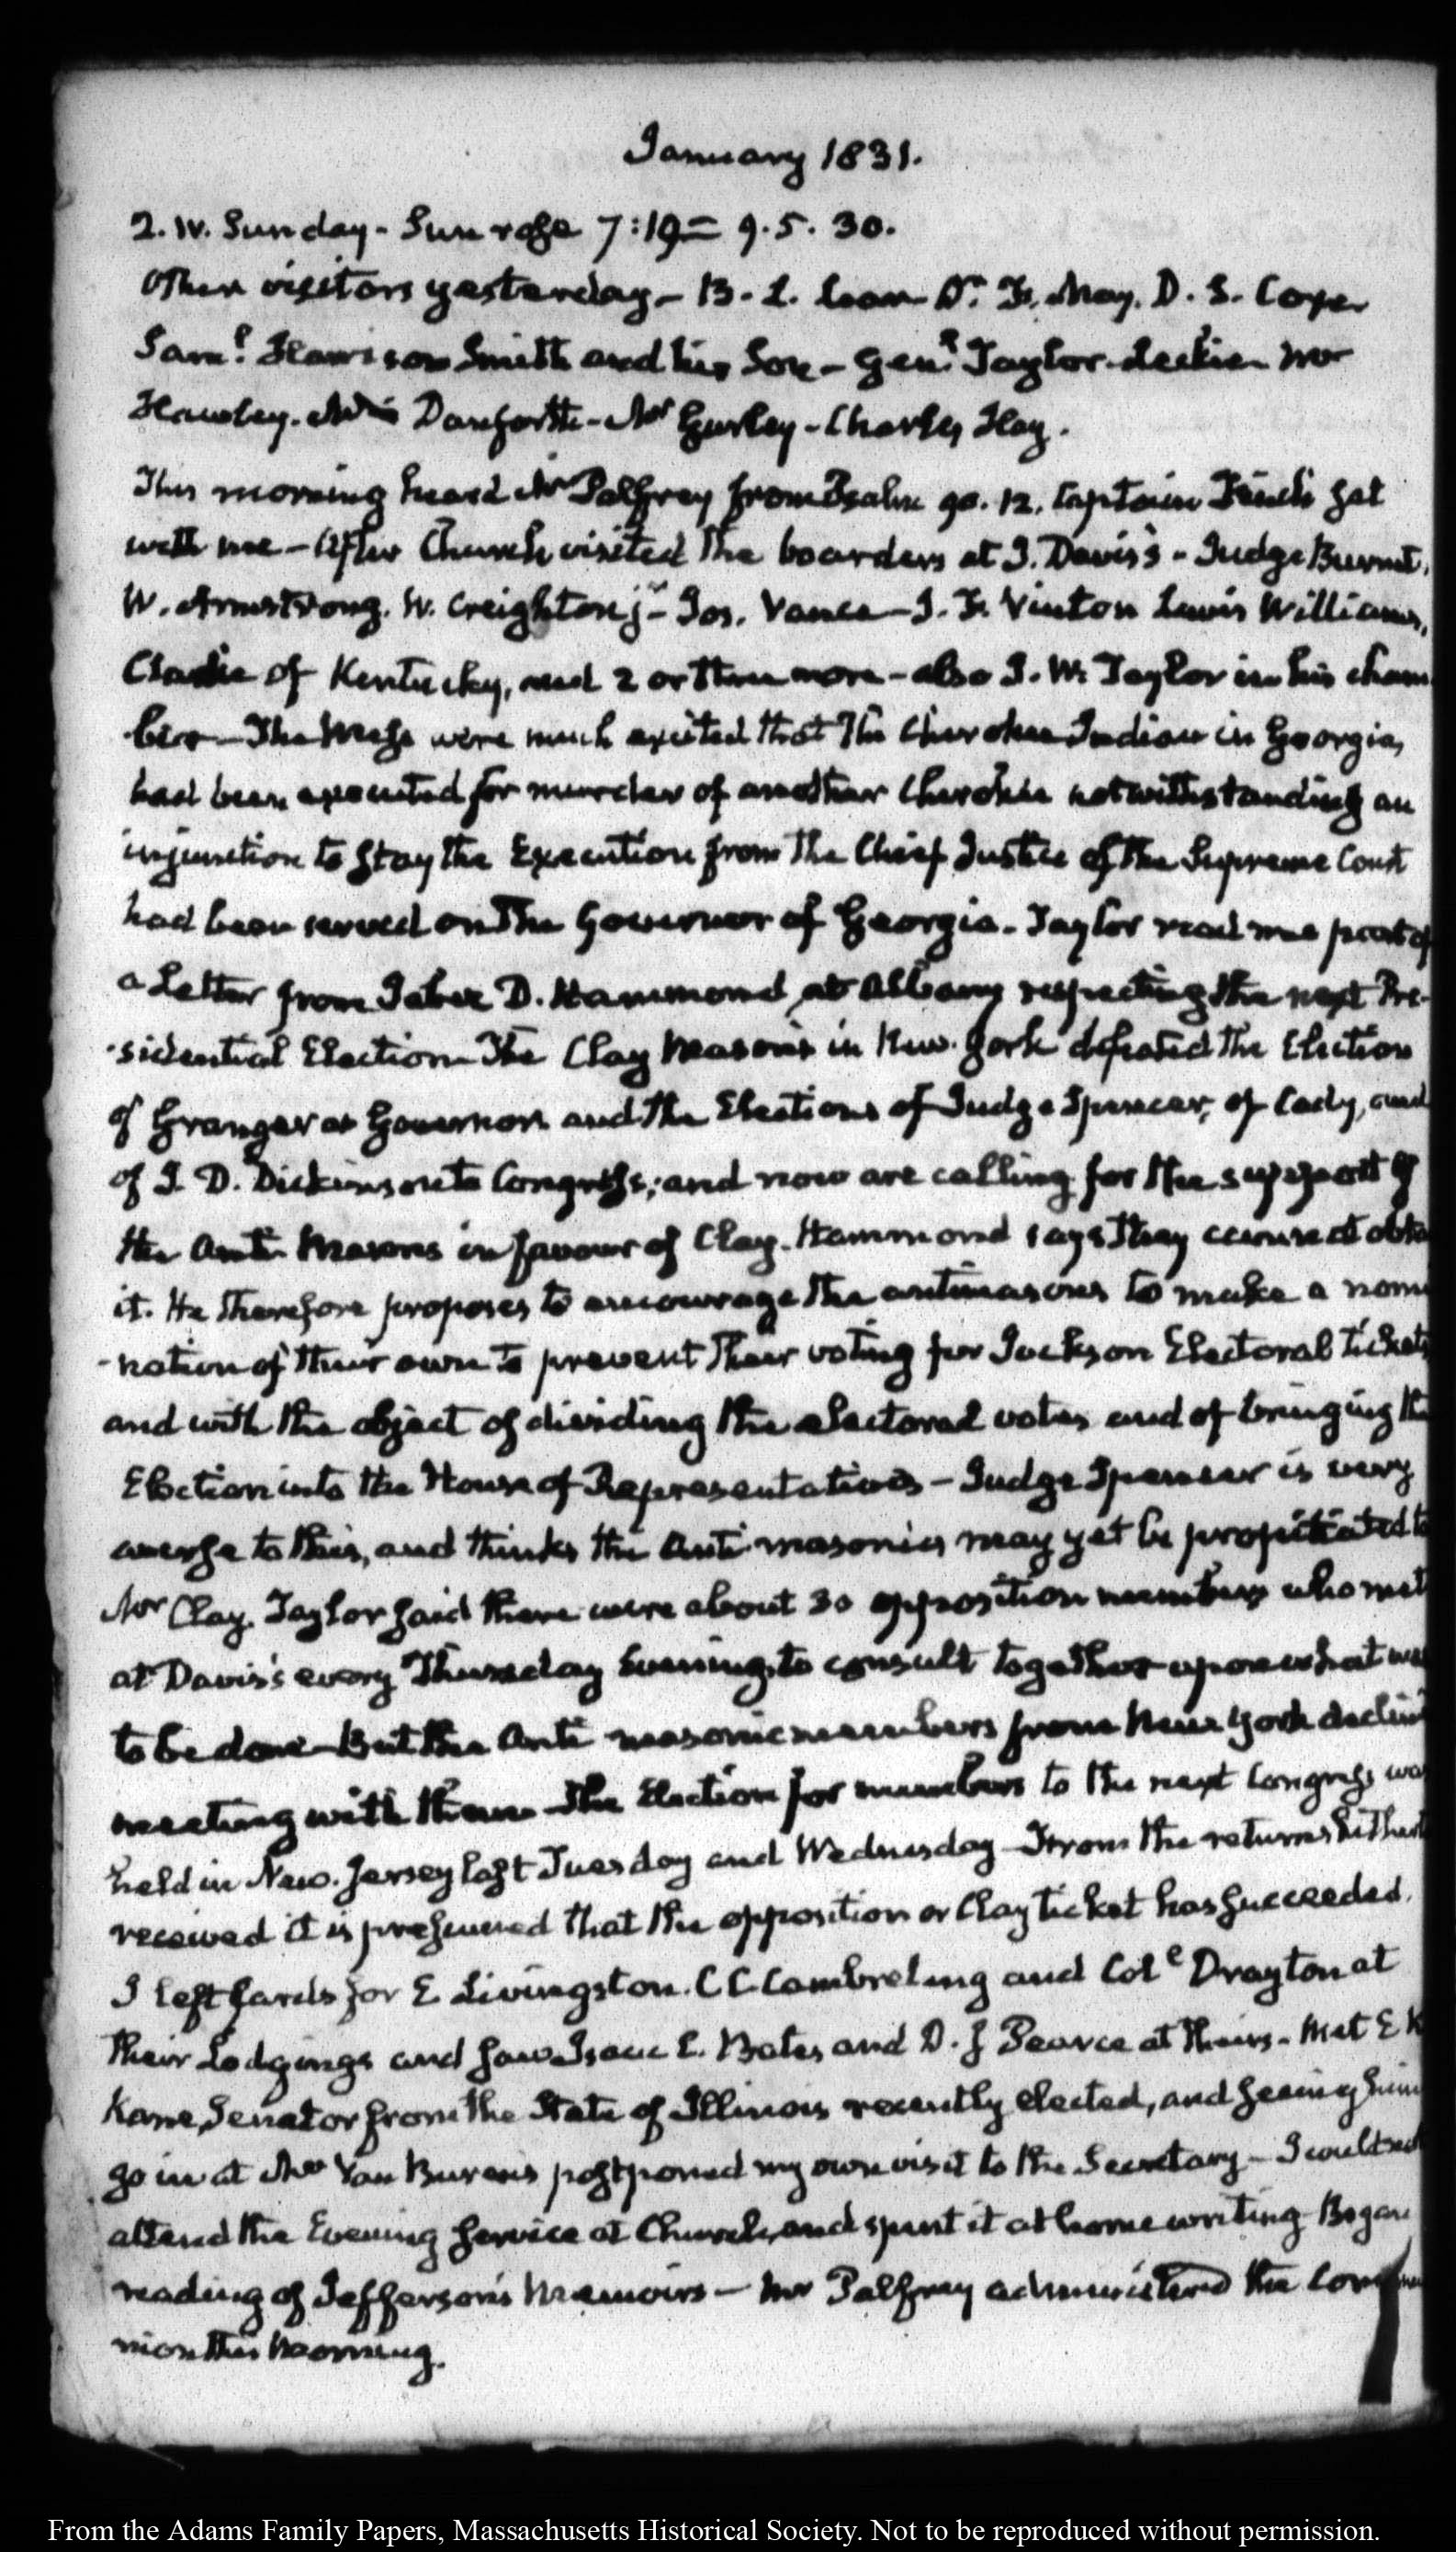 January 1831.
2. IV. Sunday - Sun rose 7:19 = 9.5. 30.
Other visitors yesterday - B. L. Lear Dr. F. May. D. S.
Saml. Harrison Smith and his Son - Genl. Taylor. Mr
Hawley. Danforth - Mr Gurley - Charles Hay.
This morning heard Mr Palfrey from Psalm 90. 12. Captain Finch sat
with me - After Church visited the boarders at J. Davis's - Judge Burnet,
W. Armstrong. W. Creighton jr - Jos. Vance - J. F. Vinton Lewis Williams,
of Kentucky, and 2 or three more - also J. W. Taylor in his cham
ber - The Mess were much excited that the Cherokee Indian in Georgia,
had been executed for murder of another Cherokee notwithstanding an
injunction to stay the Execution from the Chief Justice of the Supreme Court
had been served on the Governor of Georgia. Taylor read me part of
a Letter from Jabez D. Hammond at Albany respecting the next Pre-
-sidential Election - The Clay Masons in New-York defeated the Election
of Granger as Governor and the Elections of Judge Spencer, of Cady, and
of J. D. Dickinson to Congress; and now are calling for the support of
the Anti-Masons in favour of Clay. Hammond says they cannot obta
it. He therefore proposes to encourage the antimasons to make a nomi
-nation of their own to prevent their voting for Jackson Electoral tickets
and with the object of dividing the electoral votes and of bringing the
Election into the House of Representatives - Judge Spencer is very
averse to this, and thinks the Anti masonics may yet be propitiated to
Mr Clay. Taylor said there were about 30 opposition members who met
at Davis's every Thursday Evening, to consult together upon what was
to be done - But the Anti-masonic members from New York declin
meeting with them - The Election for members to the next Congress was
held in New-Jersey last Tuesday and Wednesday - From the returns hither
received it is presumed that the opposition or Clay ticket has succeeded.
I left cards for E Livingston. C C Cambreleng and Coll Drayton at
their Lodgings and saw Isaac C. Bates, and D. J Pearce at theirs - Met E K
Kane, Senator from the State of Illinois recently elected, and seeing him
go in at Mr Van Buren's postponed my own visit to the Secretary - I could not
attend the Evening service at Church, and spent it at home writing - Began
reading of Jefferson's Memoirs - Mr Palfrey administered the Commu
nion this Morning.
From the Adams Family Papers, Massachusetts Historical Society. Not to be reproduced without permission.